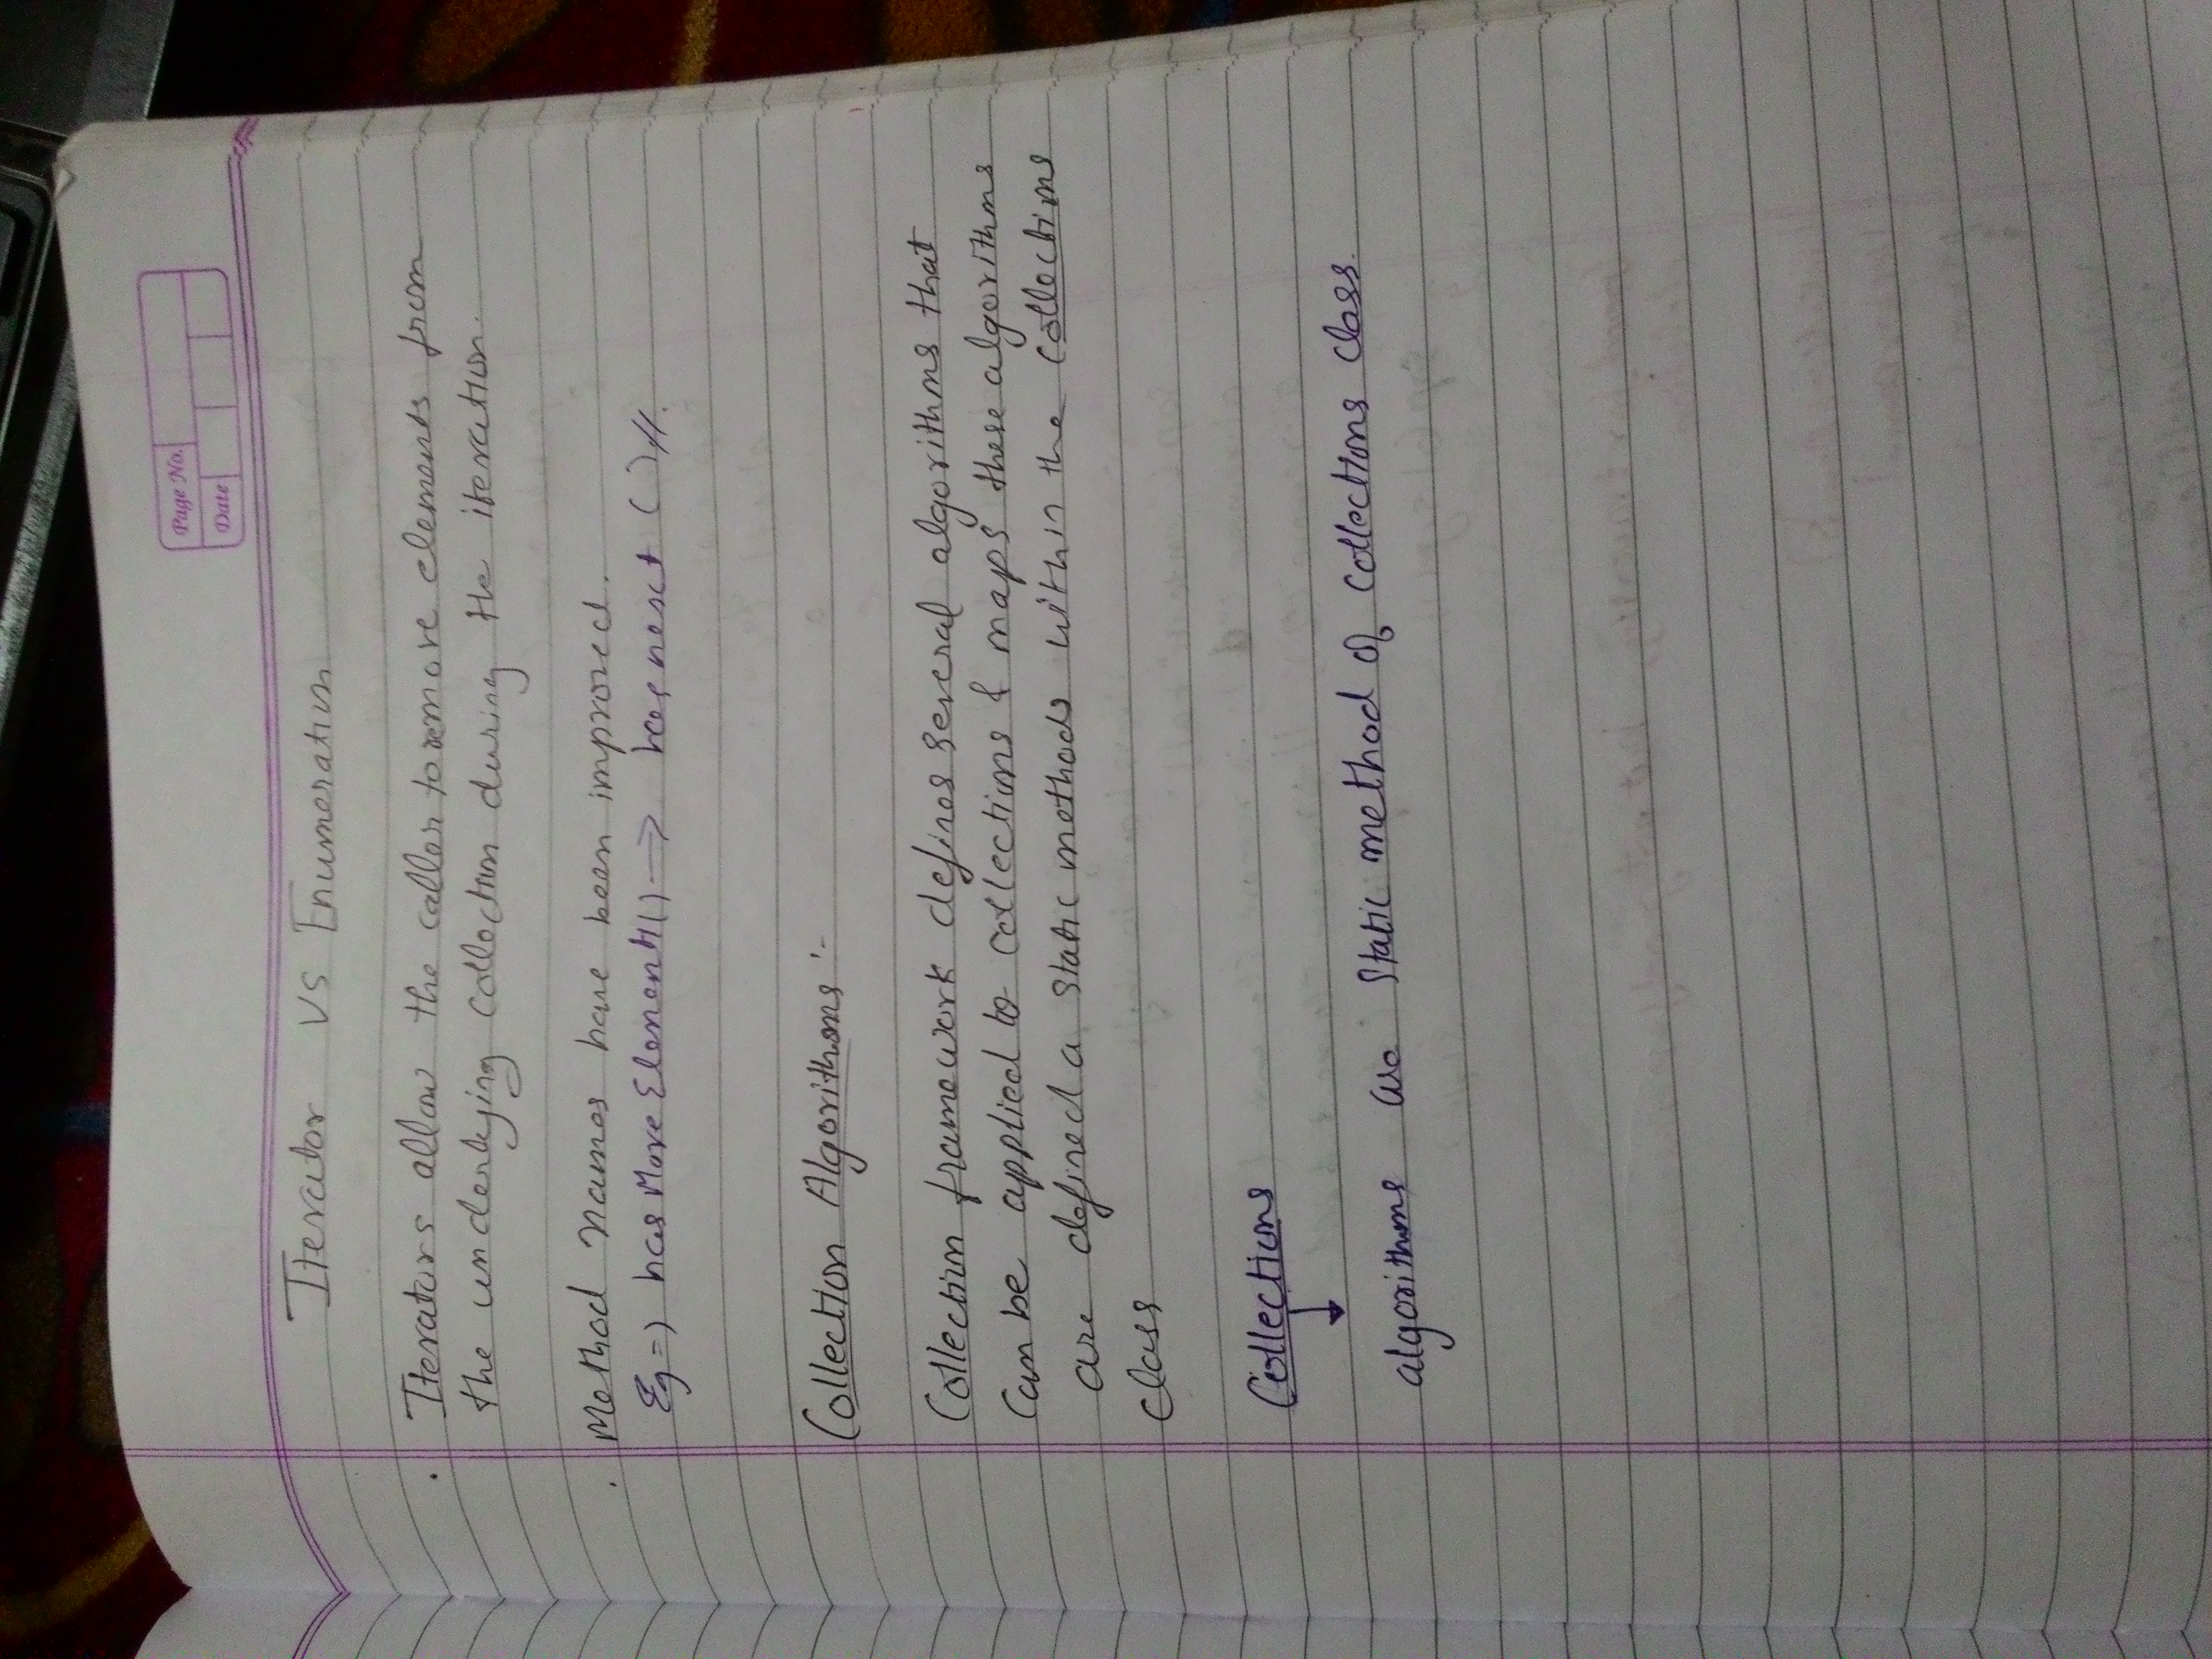 Page No.
Date
Iterator VS Enumeration
. Iterators allow the caller to remove elements from
the underlying collection during the iteration.
. Method names have been improved.
Eg => hasMoreElements() -> hasnext () //.
Collection Algorithms :-
Collection framework defines several algorithms that
can be applied to collections & maps these algorithms
are defined a static methods within the collections
class
Collections
↓
algorithms are static method of collections class.